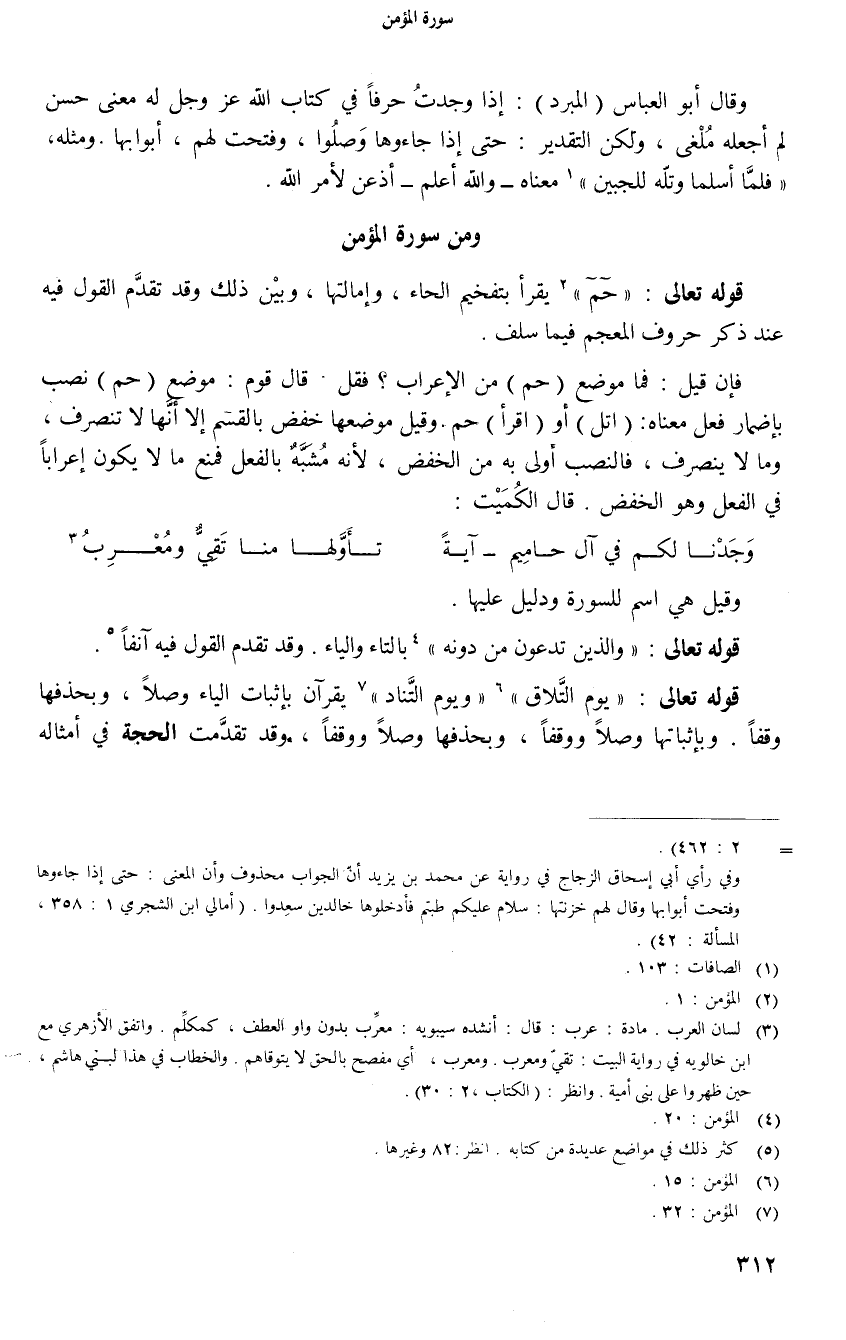 سورة المؤمن
وقال أبو العباس ( المبرد ) : إذا وجدتُ حرفاً في كتاب الله عز وجل له معنى حسن
لم أجعله مُلْغى ، ولكن التقدير : حتى إذا جاءوها وَصلُوا ، وفتحت لهم ، أبوابها . ومثله،
« فلمَّا أسلما وتلّه للجبين »١ معناه ـ والله أعلم ـ أذعن لأمر الله .
ومن سورة المؤمن
قوله تعالى : « حَمَ »٢ يقرأ بتفخيم الحاء ، وإمالتها ، وبيْن ذلك وقد تقدَّم القول فيه
عند ذكر حروف المعجم فيما سلف .
فإن قيل : فما موضع ( حم ) من الإعراب ؟ فقل قال قوم : موضع ( حم ) نصب
بإضمار فعل معناه: ( اتل ) أو ( اقرأ ) حم . وقيل موضعها خفض بالقسَم إلا أنَّها لا تنصرف ،
وما لا ينصرف ، فالنصب أولى به من الخفض ، لأنه مُشبَّهٌ بالفعل فمنع ما لا يكون إعراباً
في الفعل وهو الخفض . قال الكُمَيْت :
وَجَدْنـــا لكـــم في آل حــامِيم ـ آيــةً تــأَوَّلهــــا منــا تَقِيٌّ ومُعْــــرِبُ٣
وقيل هي اسم للسورة ودليل عليها .
قوله تعالى : « والذين تدعون من دونه »٤ بالتاء والياء . وقد تقدم القول فيه آنفاً٥ .
قوله تعالى : « يوم التَّلاق »٦ « ويوم التَّناد »٧ يقرآن بإثبات الياء وصلاً ، وبحذفها
وقفاً . وبإثباتها وصلاً ووقفاً ، وبحذفها وصلاً ووقفاً ، .وقد تقدَّمت الحجة في أمثاله
= ٢ : ٤٦٢) .
وفي رأي أبي إسحاق الزجاج في رواية عن محمد بن يزيد أنّ الجواب محذوف وأن المعنى : حتى إذا جاءوها
وفتحت أبوابها وقال لهم خزنتها : سلام عليكم طبتم فأدخلوها خالدين سعِدوا . ( أمالي ابن الشجري ١ : ٣٥٨ ،
المسألة : ٤٢) .
(١) الصافات : ١٠٣ .
(٢) المؤمن : ١ .
(٣) لسان العرب . مادة : عرب : قال : أنشده سيبويه : معرِّب بدون واو العطف ، كمكلِّم . واتفق الأزهري مع
ابن خالويه في رواية البيت : تقيّ ومعرب . ومعرب ، أي مفصح بالحق لا يتوقاهم . والخطاب في هذا لبني هاشم ،
حين ظهروا على بنى أمية . وانظر : ( الكتاب ،٢ : ٣٠) .
(٤) المؤمن : ٢٠ .
(٥) كثر ذلك في مواضع عديدة من كتابه . انظر : ٨٢ وغيرها .
(٦) المؤمن : ١٥ .
(٧) المؤمن : ٣٢ .
٣١٢